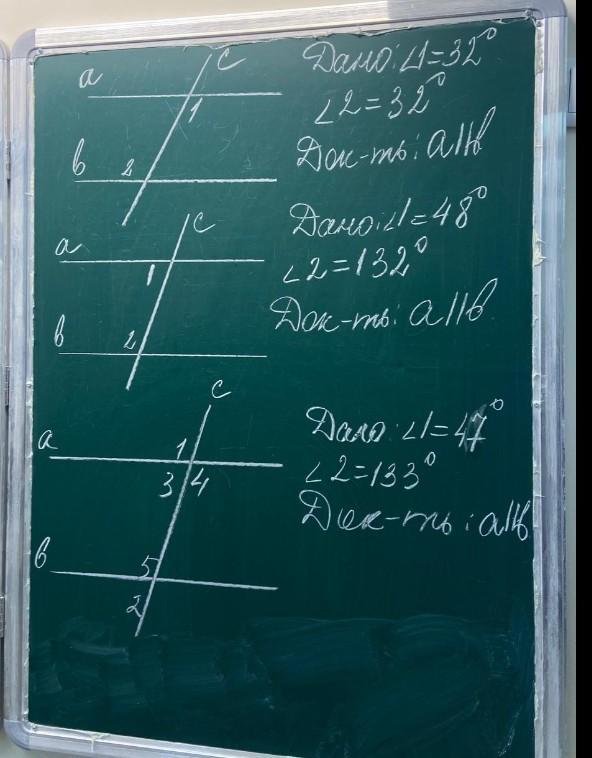 a
c
1
b
2
Дано: ∠1=32°
∠2=32°
Док-ть: a||b
a
c
1
b
2
Дано: ∠1=48°
∠2=132°
Док-ть: a||b.
c
a
1
3 4
b
5
2
Дано: ∠1=47°
∠2=133°
Док-ть: a||b